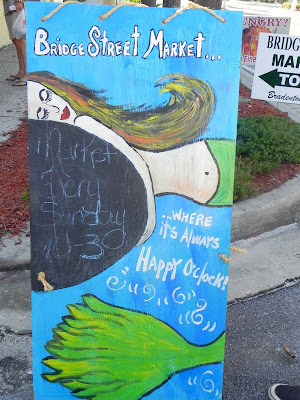 BRIDGE STREET MARKET...
Market
Every
Sunday
10-30
...WHERE
it's ALWAYS
HAPPY O'Clock!
HUNGRY?
BRIDG
MAR
TO
Bradento